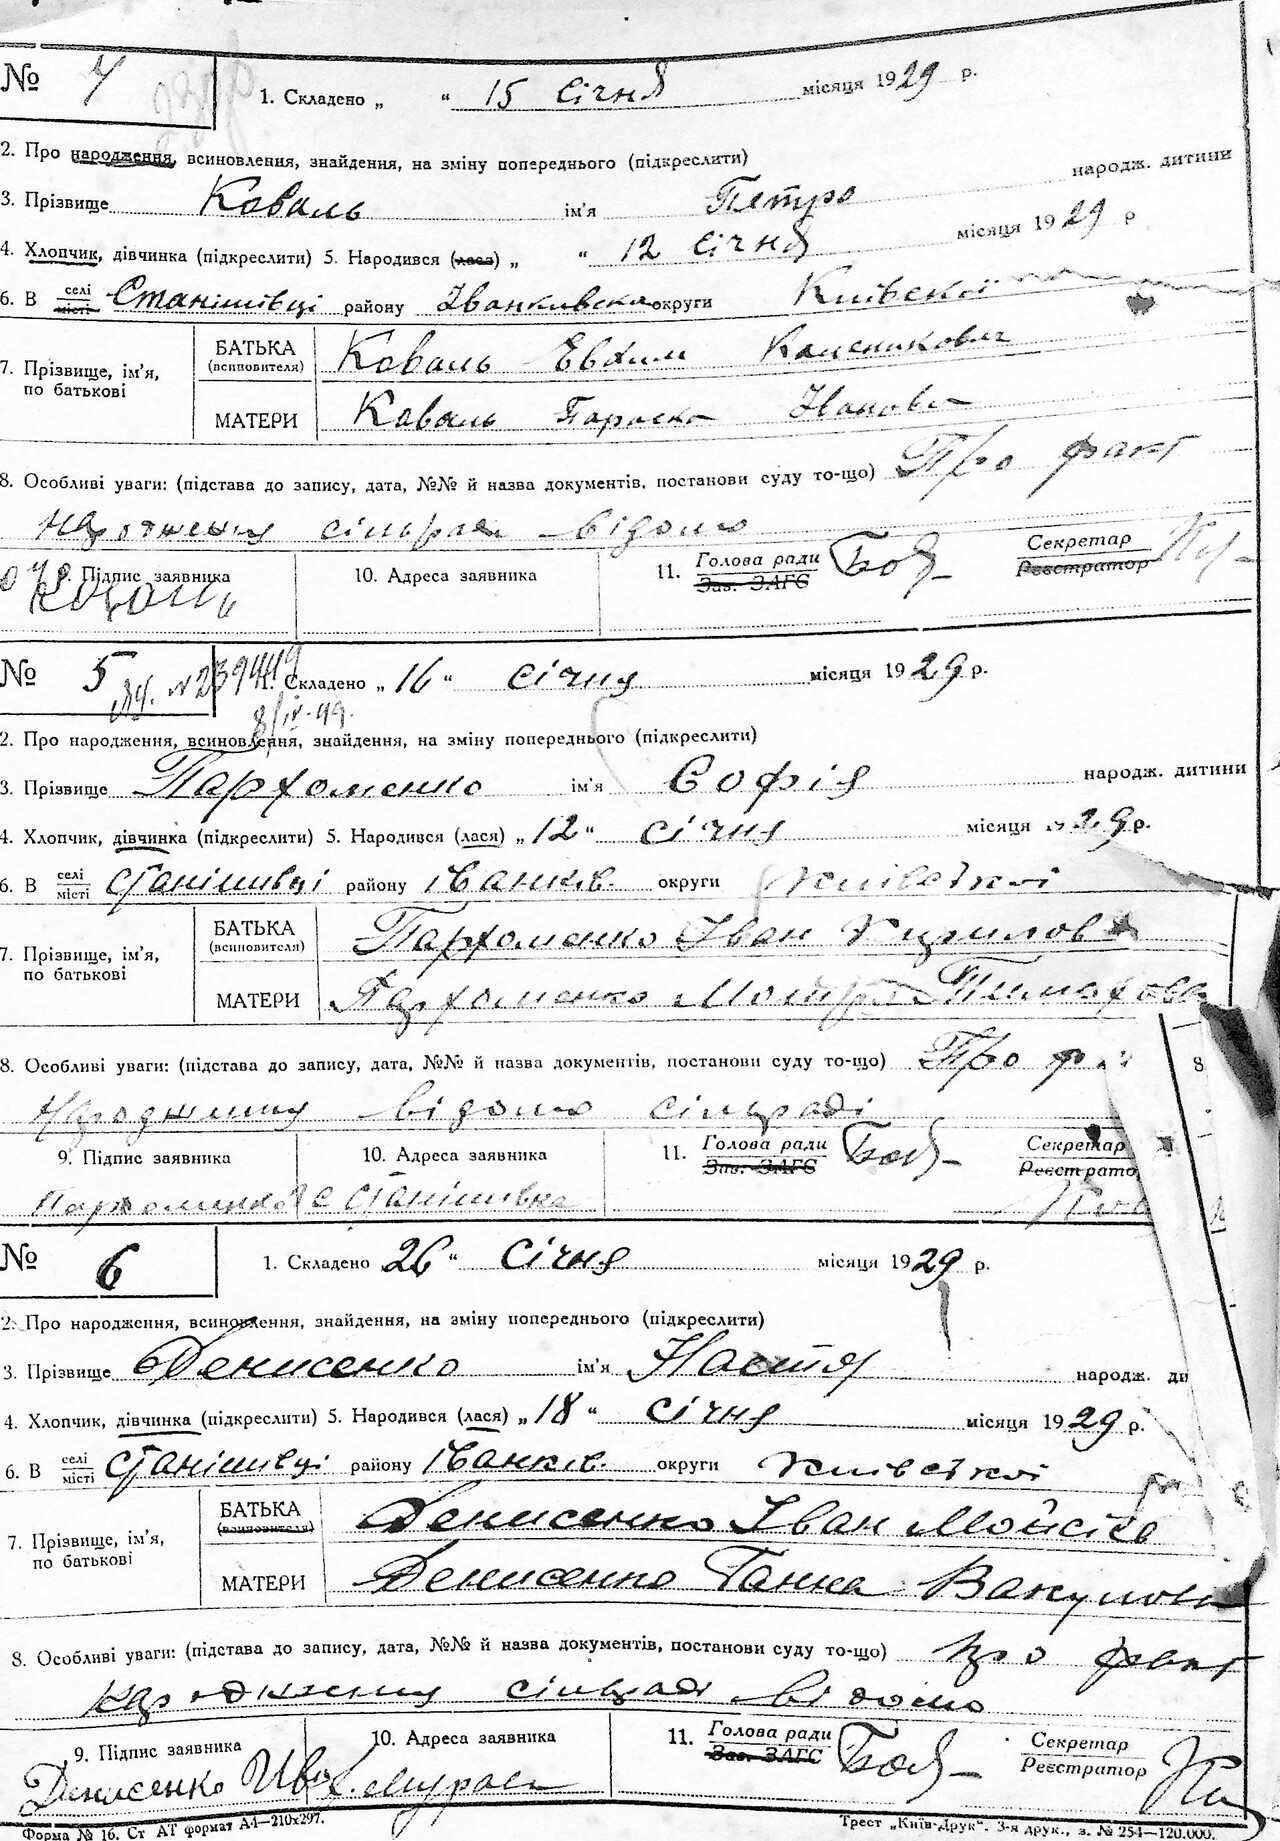 № 4 1. Складено „ “ 15 січня місяця 1929 р.
2. Про народження, всиновлення, знайдення, на зміну попереднього (підкреслити)
3. Прізвище Коваль ім'я Петро народж. дитини
4. Хлопчик, дівчинка (підкреслити) 5. Народився (лася) „ “ 12 січня місяця 1929 р
6. В селі місті Станішівці району Іванківська округи Київської
7. Прізвище, ім'я, по батькові БАТЬКА (всиновителя) Коваль Евхим
МАТЕРИ Коваль Параска Іванова
8. Особливі уваги: (підстава до запису, дата, №№ й назва документів, постанови суду то-що) Про факт
сільраді відомо
9. Підпис заявника 10. Адреса заявника 11. Голова ради Зав. ЗАГС Секретар Реєстратор
Коваль
№ 5 № 239419 1. Складено „ 16 “ січня місяця 1929 р.
8/IV-49.
2. Про народження, всиновлення, знайдення, на зміну попереднього (підкреслити)
3. Прізвище Пархоменко ім'я Софія народж. дитини
4. Хлопчик, дівчинка (підкреслити) 5. Народився (лася) „ 12 “ січня місяця 1929 р.
6. В селі місті Станішівці району Іванків. округи Київської
7. Прізвище, ім'я, по батькові БАТЬКА (всиновителя) Пархоменко Іван Кирилов
МАТЕРИ Пархоменко Мотря Тимохова
8. Особливі уваги: (підстава до запису, дата, №№ й назва документів, постанови суду то-що) Про
народження відомо сільраді
9. Підпис заявника 10. Адреса заявника 11. Голова ради Зав. ЗАГС Секретар Реєстрато
Пархоменко с Станішівка
№ 6 1. Складено 26 “ січня місяця 1929 р.
2. Про народження, всиновлення, знайдення, на зміну попереднього (підкреслити)
3. Прізвище Денисенко ім'я Настя народж. ди
4. Хлопчик, дівчинка (підкреслити) 5. Народився (лася) „ 18 “ січня місяця 1929 р.
6. В селі місті Станішівці району Іванків. округи Київської
7. Прізвище, ім'я, по батькові БАТЬКА (всиновителя) Денисенко Іван Мойсіїв
МАТЕРИ Денисенко Ганна Вакулова
8. Особливі уваги: (підстава до запису, дата, №№ й назва документів, постанови суду то-що) про факт
народження сільраді відомо
9. Підпис заявника 10. Адреса заявника 11. Голова ради Зав. ЗАГС Секретар Реєстратор
Денисенко
Форма № 16. Ст АТ формат А4—210х297. Трест „Київ-Друк“. 3-я друк., з. № 254—120.000.